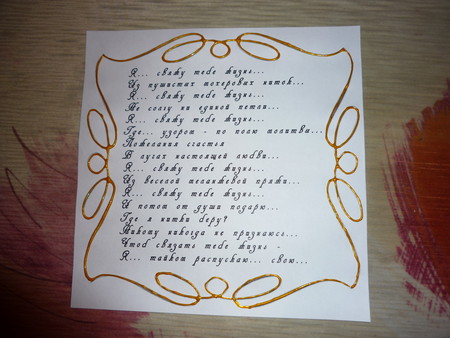 Я... свяжу тебе жизнь...
Из пушистых мохеровых ниток...
Я... свяжу тебе жизнь...
Не солгу ни единой петли...
Я... свяжу тебе жизнь...
Где... узором - по полю молитвы...
Пожелания счастья
В лучах настоящей любви...
Я... свяжу тебе жизнь...
Из веселой меланжевой пряжи...
Я... свяжу тебе жизнь...
И потом от души подарю...
Где я нитки беру?
Никому никогда не признаюсь...
Чтоб связать тебе жизнь -
Я... тайком распускаю... свою...